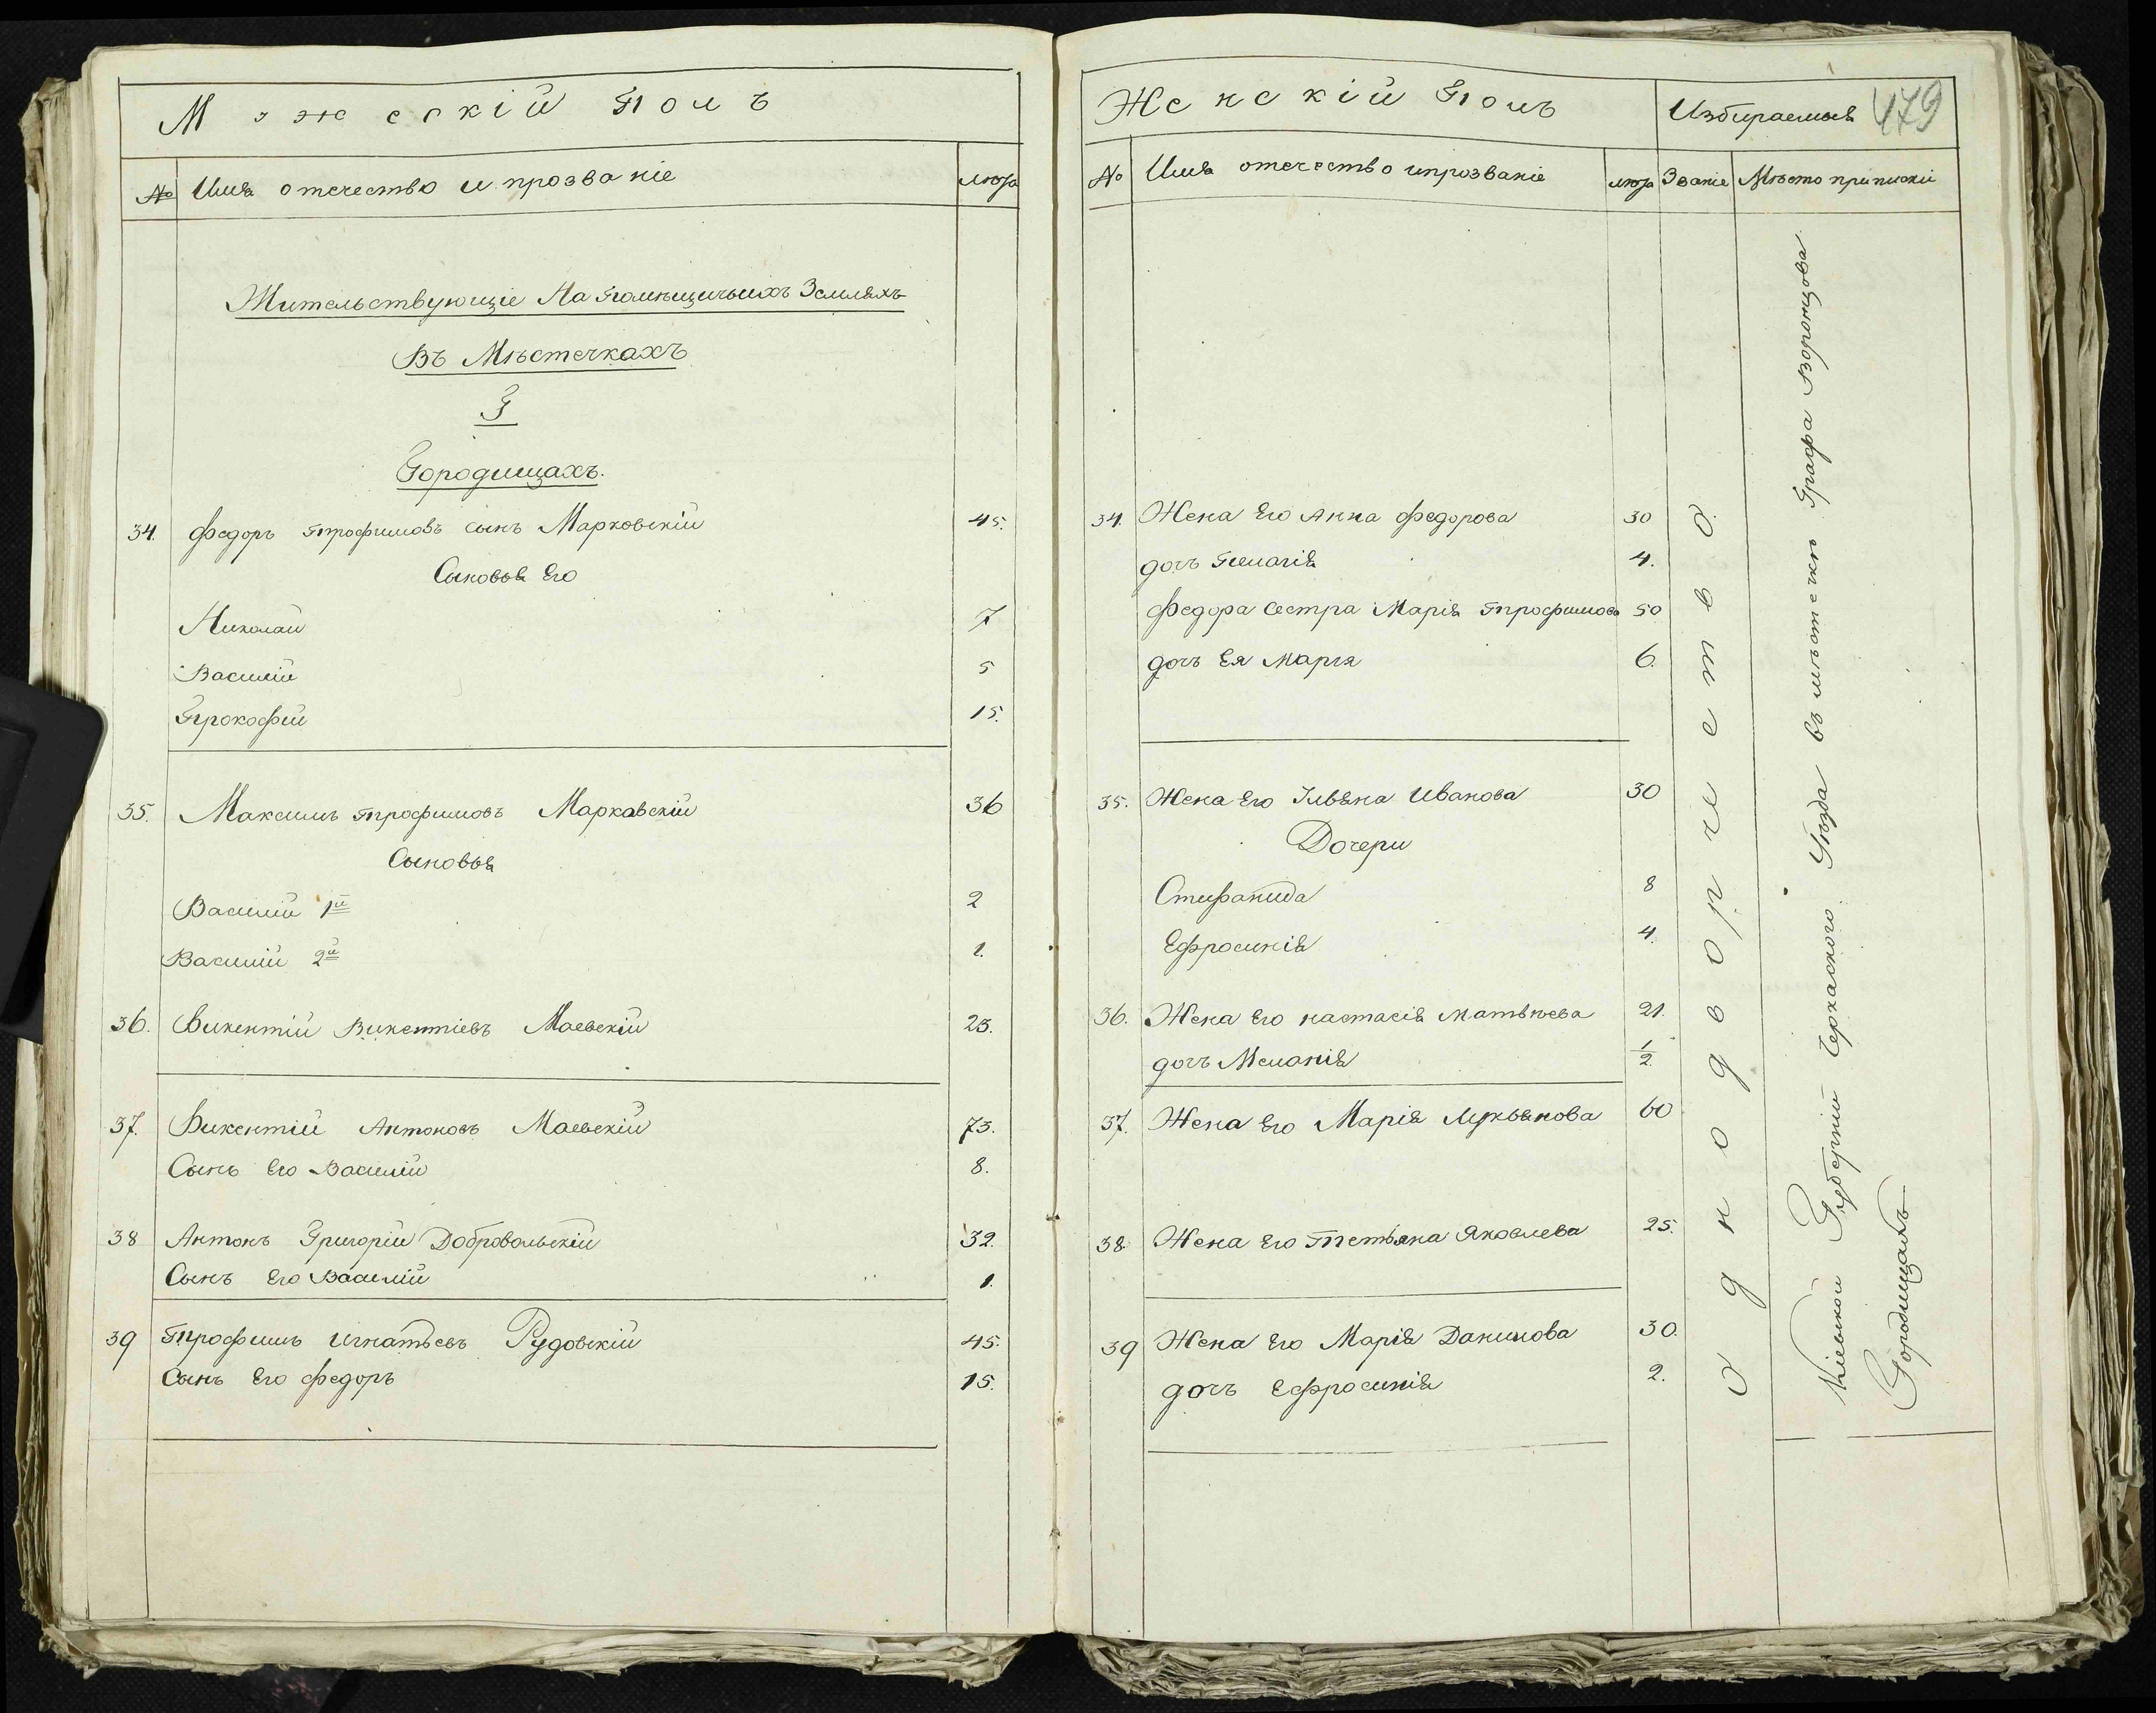 Мужескій Полъ
№ Имя отечество и прозваніе лѣта
Жительствующіе На Помѣщичьихъ Земляхъ
Въ Мѣстечкахъ
Городищахъ.
34. Федоръ Трофимовъ сынъ Марковскій 45.
Сыновья Его
Николай 7
Василій 5
Прокофій 15.
35. Максимъ Трофимовъ Маркавскій 36
Сыновья
Василій 1й 2
Василій 2й 1.
36. Викентій Викентіевъ Маевскій 23.
37. Викентій Антоновъ Маевскій 73.
Сынъ Его Василій 8.
38 Антонъ Григорій Добровольскій 32.
Сынъ Его Василій 1.
39 Трофимъ Игнатьевъ Рудовскій 45.
Сынъ Его Федоръ 15.
Женскій Полъ Избираемыя 479
№ Имя отечество ипрозваніе лѣта Званіе Мѣсто приписки
34. Жена Его Анна Федорова 30
дочь Пелагія 4.
Федора Сестра Марія Трофимова 50
дочь Ея Марія 6.
35. Жена Его Ульяна Иванова 30
Дочери
Стифанида 8
Ефросинія 4.
36. Жена Его настасія Матвѣева 21.
дочь Меланія 1/2
37. Жена Его Марія Лукьянова 60
38. Жена Его Тетьяна Яковлева 25.
39 Жена Его Марія Данилова 30.
дочь Ефросинія 2.
Кіевской Губерніи Черкаского Уѣзда въ мѣстечкѣ Графа Воронцова
Городищахъ